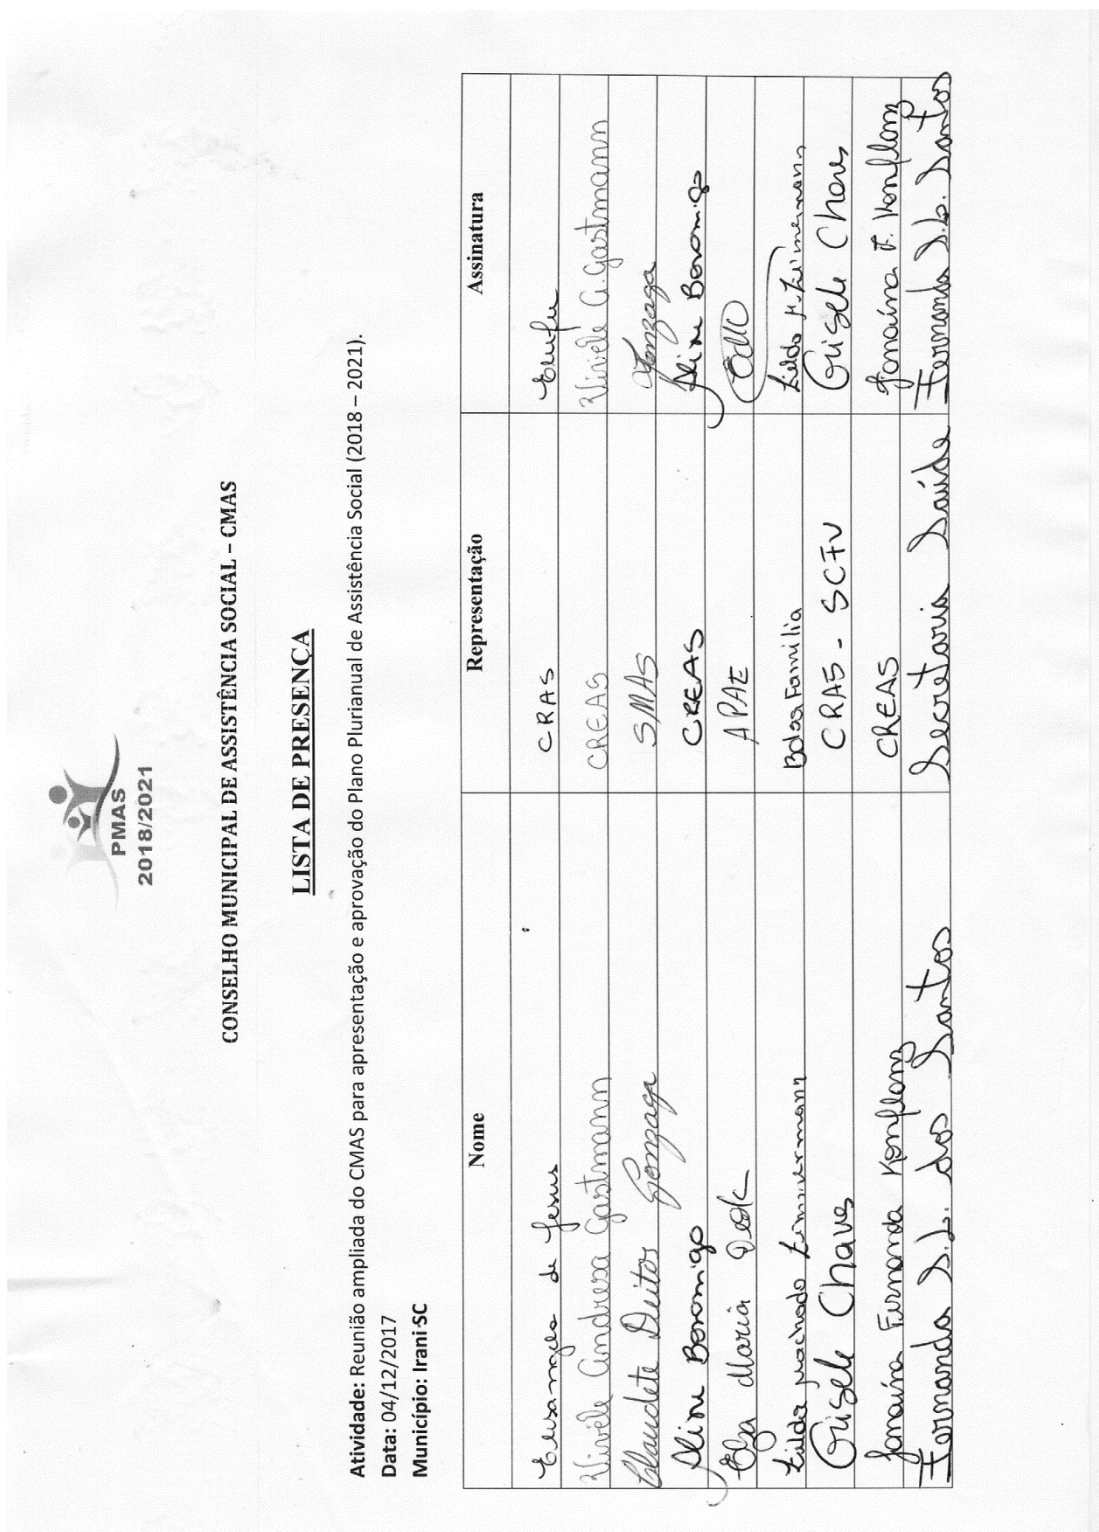 PMAS
2018/2021
CONSELHO MUNICIPAL DE ASSISTÊNCIA SOCIAL – CMAS
LISTA DE PRESENÇA
Atividade: Reunião ampliada do CMAS para apresentação e aprovação do Plano Plurianual de Assistência Social (2018 – 2021).
Data: 04/12/2017
Município: Irani-SC
Nome Representação Assinatura
Elisangela de Jesus CRAS
Viviele Andresa Gastmann CREAS Viviele A. Gastmann
Claudete Deitos Gonzaga SMAS Gonzaga
Aline Boromigo CREAS Aline Boromigo
Elza Maria APAE
Zilda Machado Zimmermann Bolsa Familia Zilda M. Zimermann
Gisele Chaves CRAS - SCFV Gisele Chaves
Janaína Fernanda Konflanz CREAS Janaína F. Konflanz
Fernanda S.L. dos Santos Secretaria Saúde Fernanda S.L. Santos